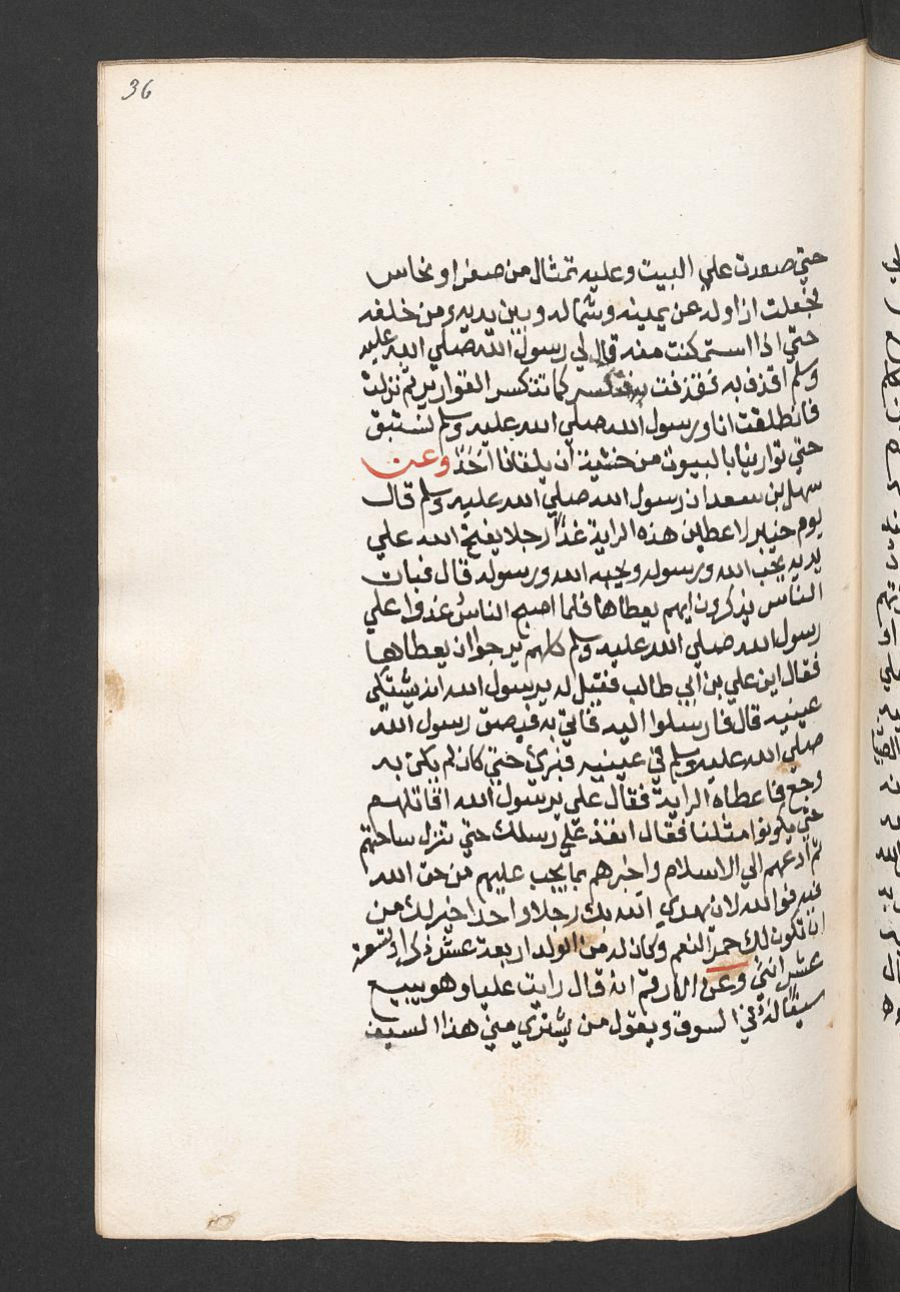 36
حتي صعدت علي البيت وعليه تمثال من صفر او نحاس
فجعلت ازاوله عن يمينه وشماله وبين يديه ومن خلفه
حتي اذا استمكنت منه قال لي رسول الله صلي الله عليه
وسلم اقذف به فقذفت به فتكسر كما تتكسر القوارير ثم نزلت
فانطلقت انا ورسول الله صلي الله عليه وسلم نستبق
حتي توارينا بالبيوت من خشية ان يلقانا احد وعن
سهل بن سعد ان رسول الله صلي الله عليه وسلم قال
يوم خيبر لاعطين هذه الراية غدا رجلا يفتح الله علي
يديه يحب الله ورسوله ويحبه الله ورسوله قال فبات
الناس يذكرون ايهم يعطاها فلما اصبح الناس غدوا علي
رسول الله صلي الله عليه وسلم كلهم يرجوا ان يعطاها
فقال اين علي بن ابي طالب فقيل له يرسول الله انه يشتكي
عينيه قال فارسلوا اليه فاتي به فبصق رسول الله
صلي الله عليه وسلم في عينيه فبرئ حتي كان لم يكن به
وجع فاعطاه الراية فقال علي يرسول الله اقاتلهم
حتي يكونوا مثلنا فقال انفذ علي رسلك حتي تنزل ساحتهم
ثم ادعهم الي الاسلام واخبرهم بما يجب عليهم من حق الله
فيه فوالله لان يهدي الله بك رجلا واحدا خير لك من
ان تكون لك حمر النعم وكان له من الولد اربعة عشر ذكرا وتسعة
عشر انثي وعن الارقم انه قال رايت عليا وهو يبيع
سيفا له في السوق ويقول من يشتري مني هذا السيف